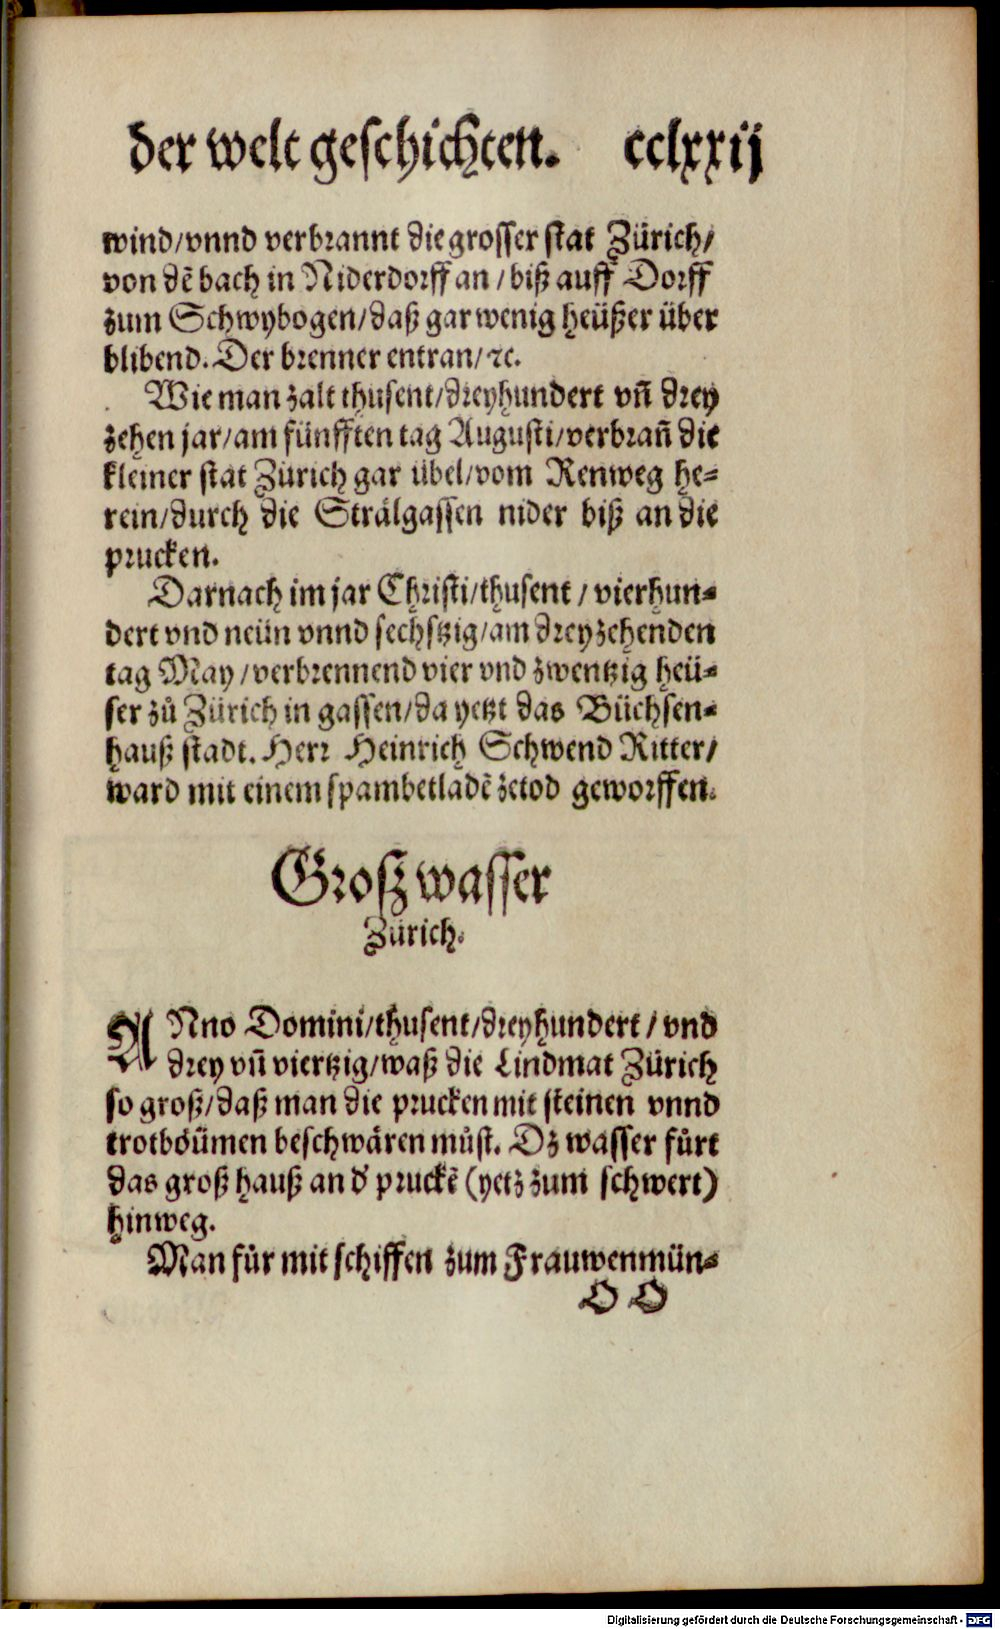 der welt geschichten. cclxxij
wind/vnnd verbrannt die grosser stat Zürich/
von dẽ bach in Niderdorff an/biß auff Dorff
zum Schwybogen/daß gar wenig heüßer über
blibend. Der brenner entran/ꝛc.
Wie man zalt thusent/dreyhundert vñ drey
zehen jar/am fünfften tag Augusti/verbrañ die
kleiner stat Zürich gar übel/vom Renweg he-
rein/durch die Strälgassen nider biß an die
prucken.
Darnach im jar Christi/thusent/vierhun-
dert vnd neün vnnd sechstzig/am dreyzehenden
tag May/verbrennend vier vnd zwentzig heü-
ser zů Zürich in gassen/da yetzt das Büchsen-
hauß stadt. Herr Heinrich Schwend Ritter/
ward mit einem spambetladẽ zetod geworffen.
Grosz wasser
Zürich.
ANno Domini/thusent/dreyhundert/vnd
drey vñ viertzig/waß die Lindmat Zürich
so groß/daß man die prucken mit steinen vnnd
trotböümen beschwären můst. Dz wasser fůrt
das groß hauß an d' pruckẽ (yetz zum schwert)
hinweg.
Man fůr mit schiffen zum Frauwenmün-
O O
Digitalisierung gefördert durch die Deutsche Forschungsgemeinschaft - DFG